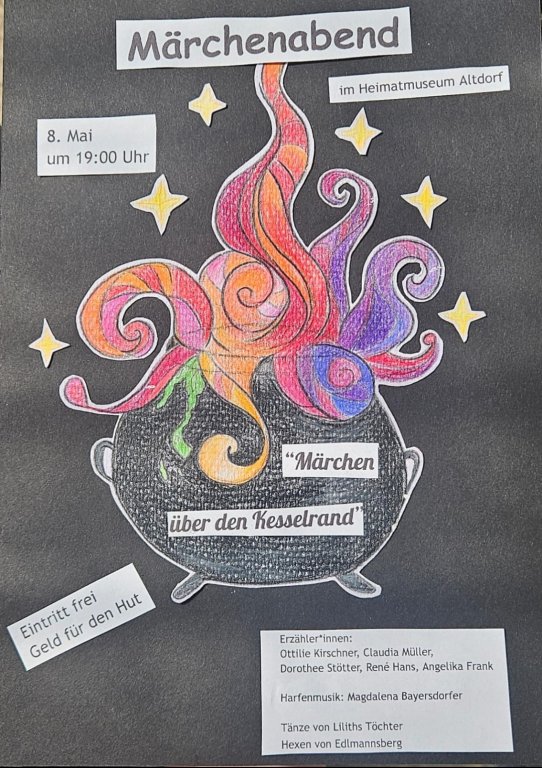 Märchenabend
im Heimatmuseum Altdorf
8. Mai
um 19:00 Uhr
“Märchen
über den Kesselrand”
Eintritt frei
Geld für den Hut
Erzähler*innen:
Ottilie Kirschner, Claudia Müller,
Dorothee Stötter, René Hans, Angelika Frank
Harfenmusik: Magdalena Bayersdorfer
Tänze von Liliths Töchter
Hexen von Edlmannsberg